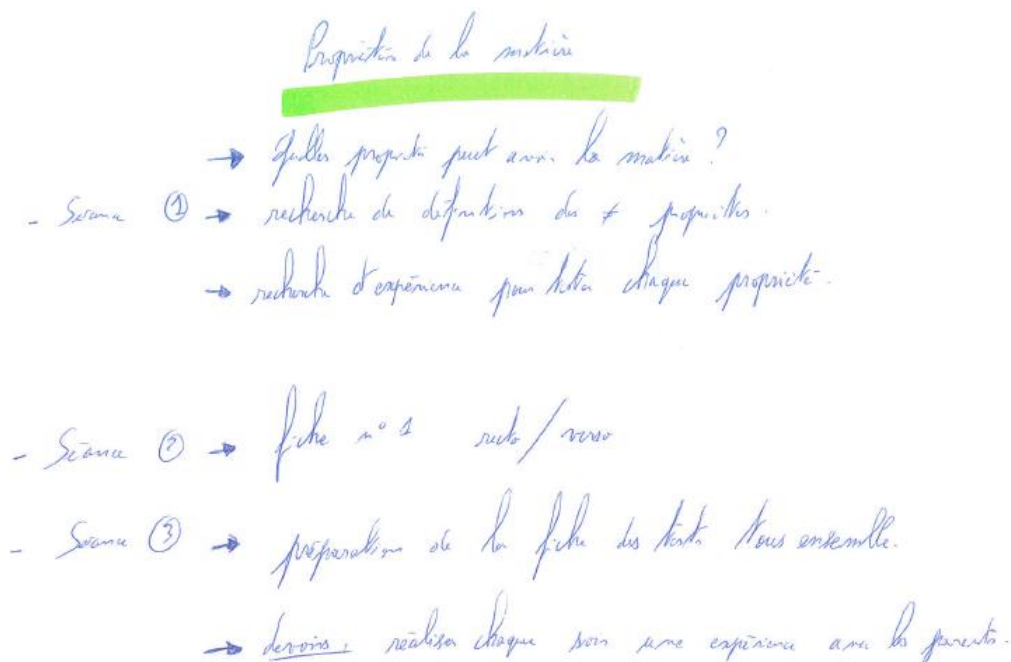 Propriétés de la matière
→ Quelles propriétés peut avoir la matière ?
- Séance ① → recherche de définitions des ≠ propriétés.
→ recherche d'expérience pour tester chaque propriété.
- Séance ② → fiche n° 1 recto / verso
- Séance ③ → préparation de la fiche des tests tous ensemble.
→ devoirs : réaliser chaque soir une expérience avec les parents.